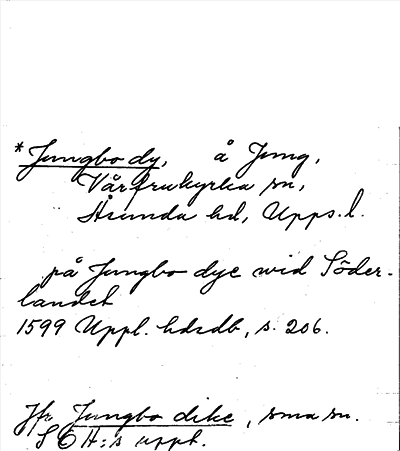 *Jungbo dy, å Jung,
Vårfrukyrka sn,
Åsunda hd, Upps. l.
på Jungbo dye wid Söder-
landet
1599 Uppl. hdrdb, s. 206.
Jfr Jungbo dike, sma sn.
SOH:s uppt.